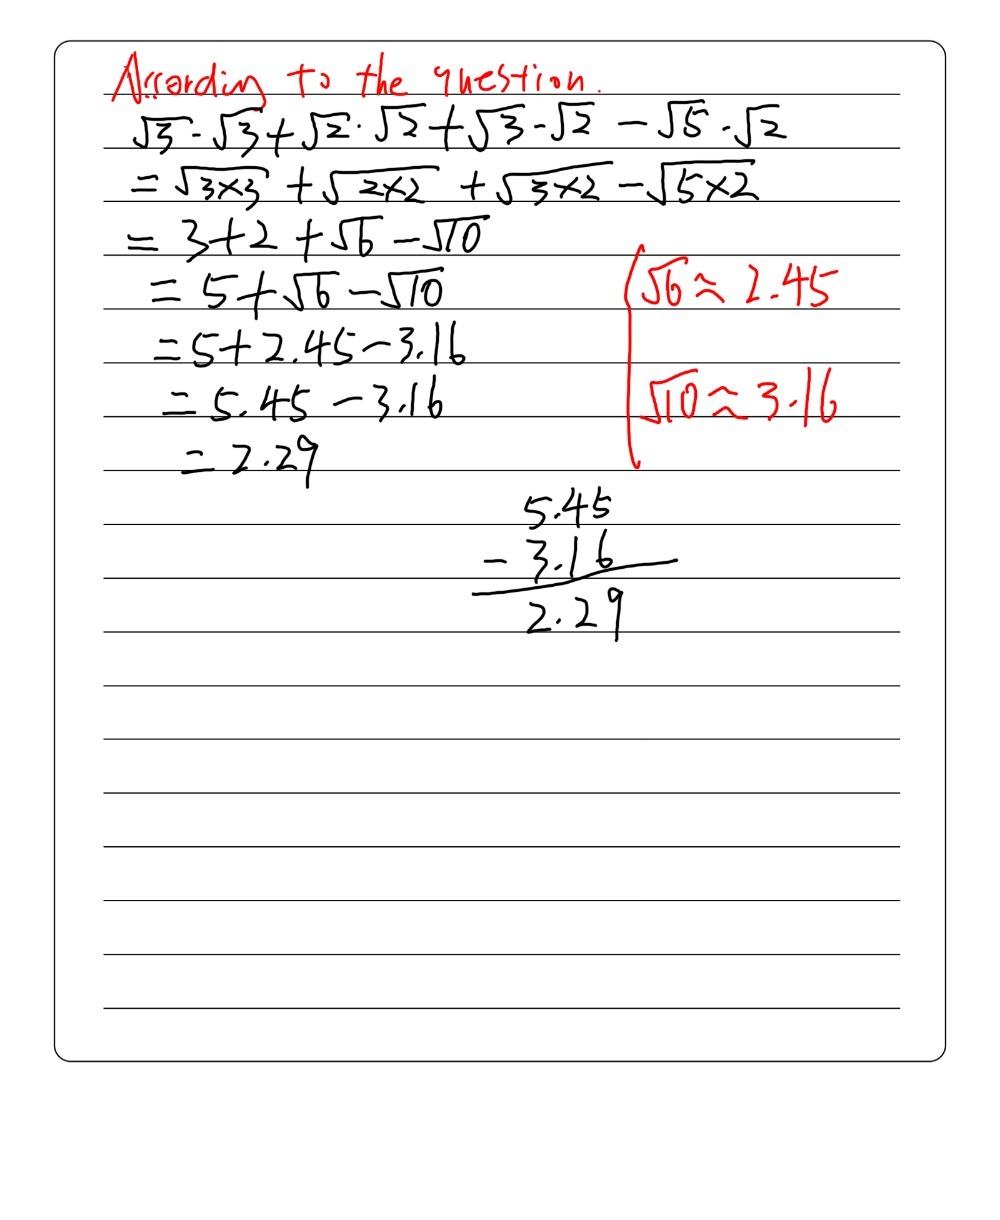 According to the question.
√3·√3+√2·√2+√3-√2 -√5·√2
=√3×3 +√2×2 +√3×2 -√5×2
= 3+2+√6-√10
= 5+√6-√10
√6≈2.45
=5+2.45-3.16
= 5.45 -3.16
√10≈3.16
= 2.29
5.45
- 3.16
2.29